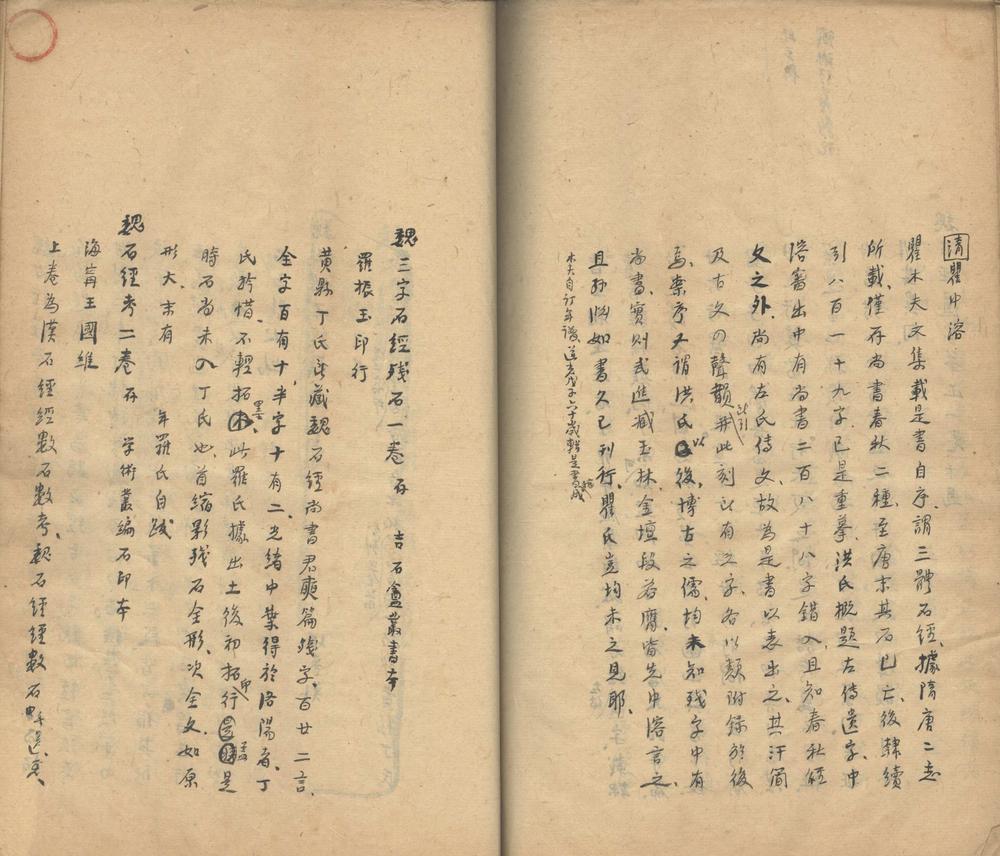 清瞿中溶
瞿木夫文集載是書自序、謂三體石經、據隋唐二志
所載、僅存尚書春秋二種、至唐末其石已亡、後隸續
引八百一十九字、已是重摹、洪氏概題左傳遺字、中
溶審出中有尚書二百八十八字錯入、且知春秋經
文之外、尚有左氏傳文、故為是書以表出之、其汗簡
及古文四聲韻所引并此刻所有之字、各以類附錄於後
焉、案序又謂洪氏以後、博古之儒、均未知殘字中有
尚書、實則武進臧玉林、金壇段若膺、皆先中溶言之、
且孫淵如書久已刊行、瞿氏豈均未之見耶、
木夫自訂年譜、道光戊子六十歲輯是書成
魏三字石經殘石一卷 存 吉石盦叢書本
羅振玉印行
黃縣丁氏所藏魏石經尚書君奭篇殘字百廿二言、
全字百有十、半字十有二、光緒中葉得於洛陽者、丁
氏矜惜、不輕拓墨、此羅氏據出土後初拓印行、是
時石尚未入丁氏也、首縮影殘石全形、次全文如原
形大、末有 年羅氏自跋
魏石經考二卷 存 學術叢編石印本
海寧王國維
上卷為漢石經經數石數考、魏石經經數石